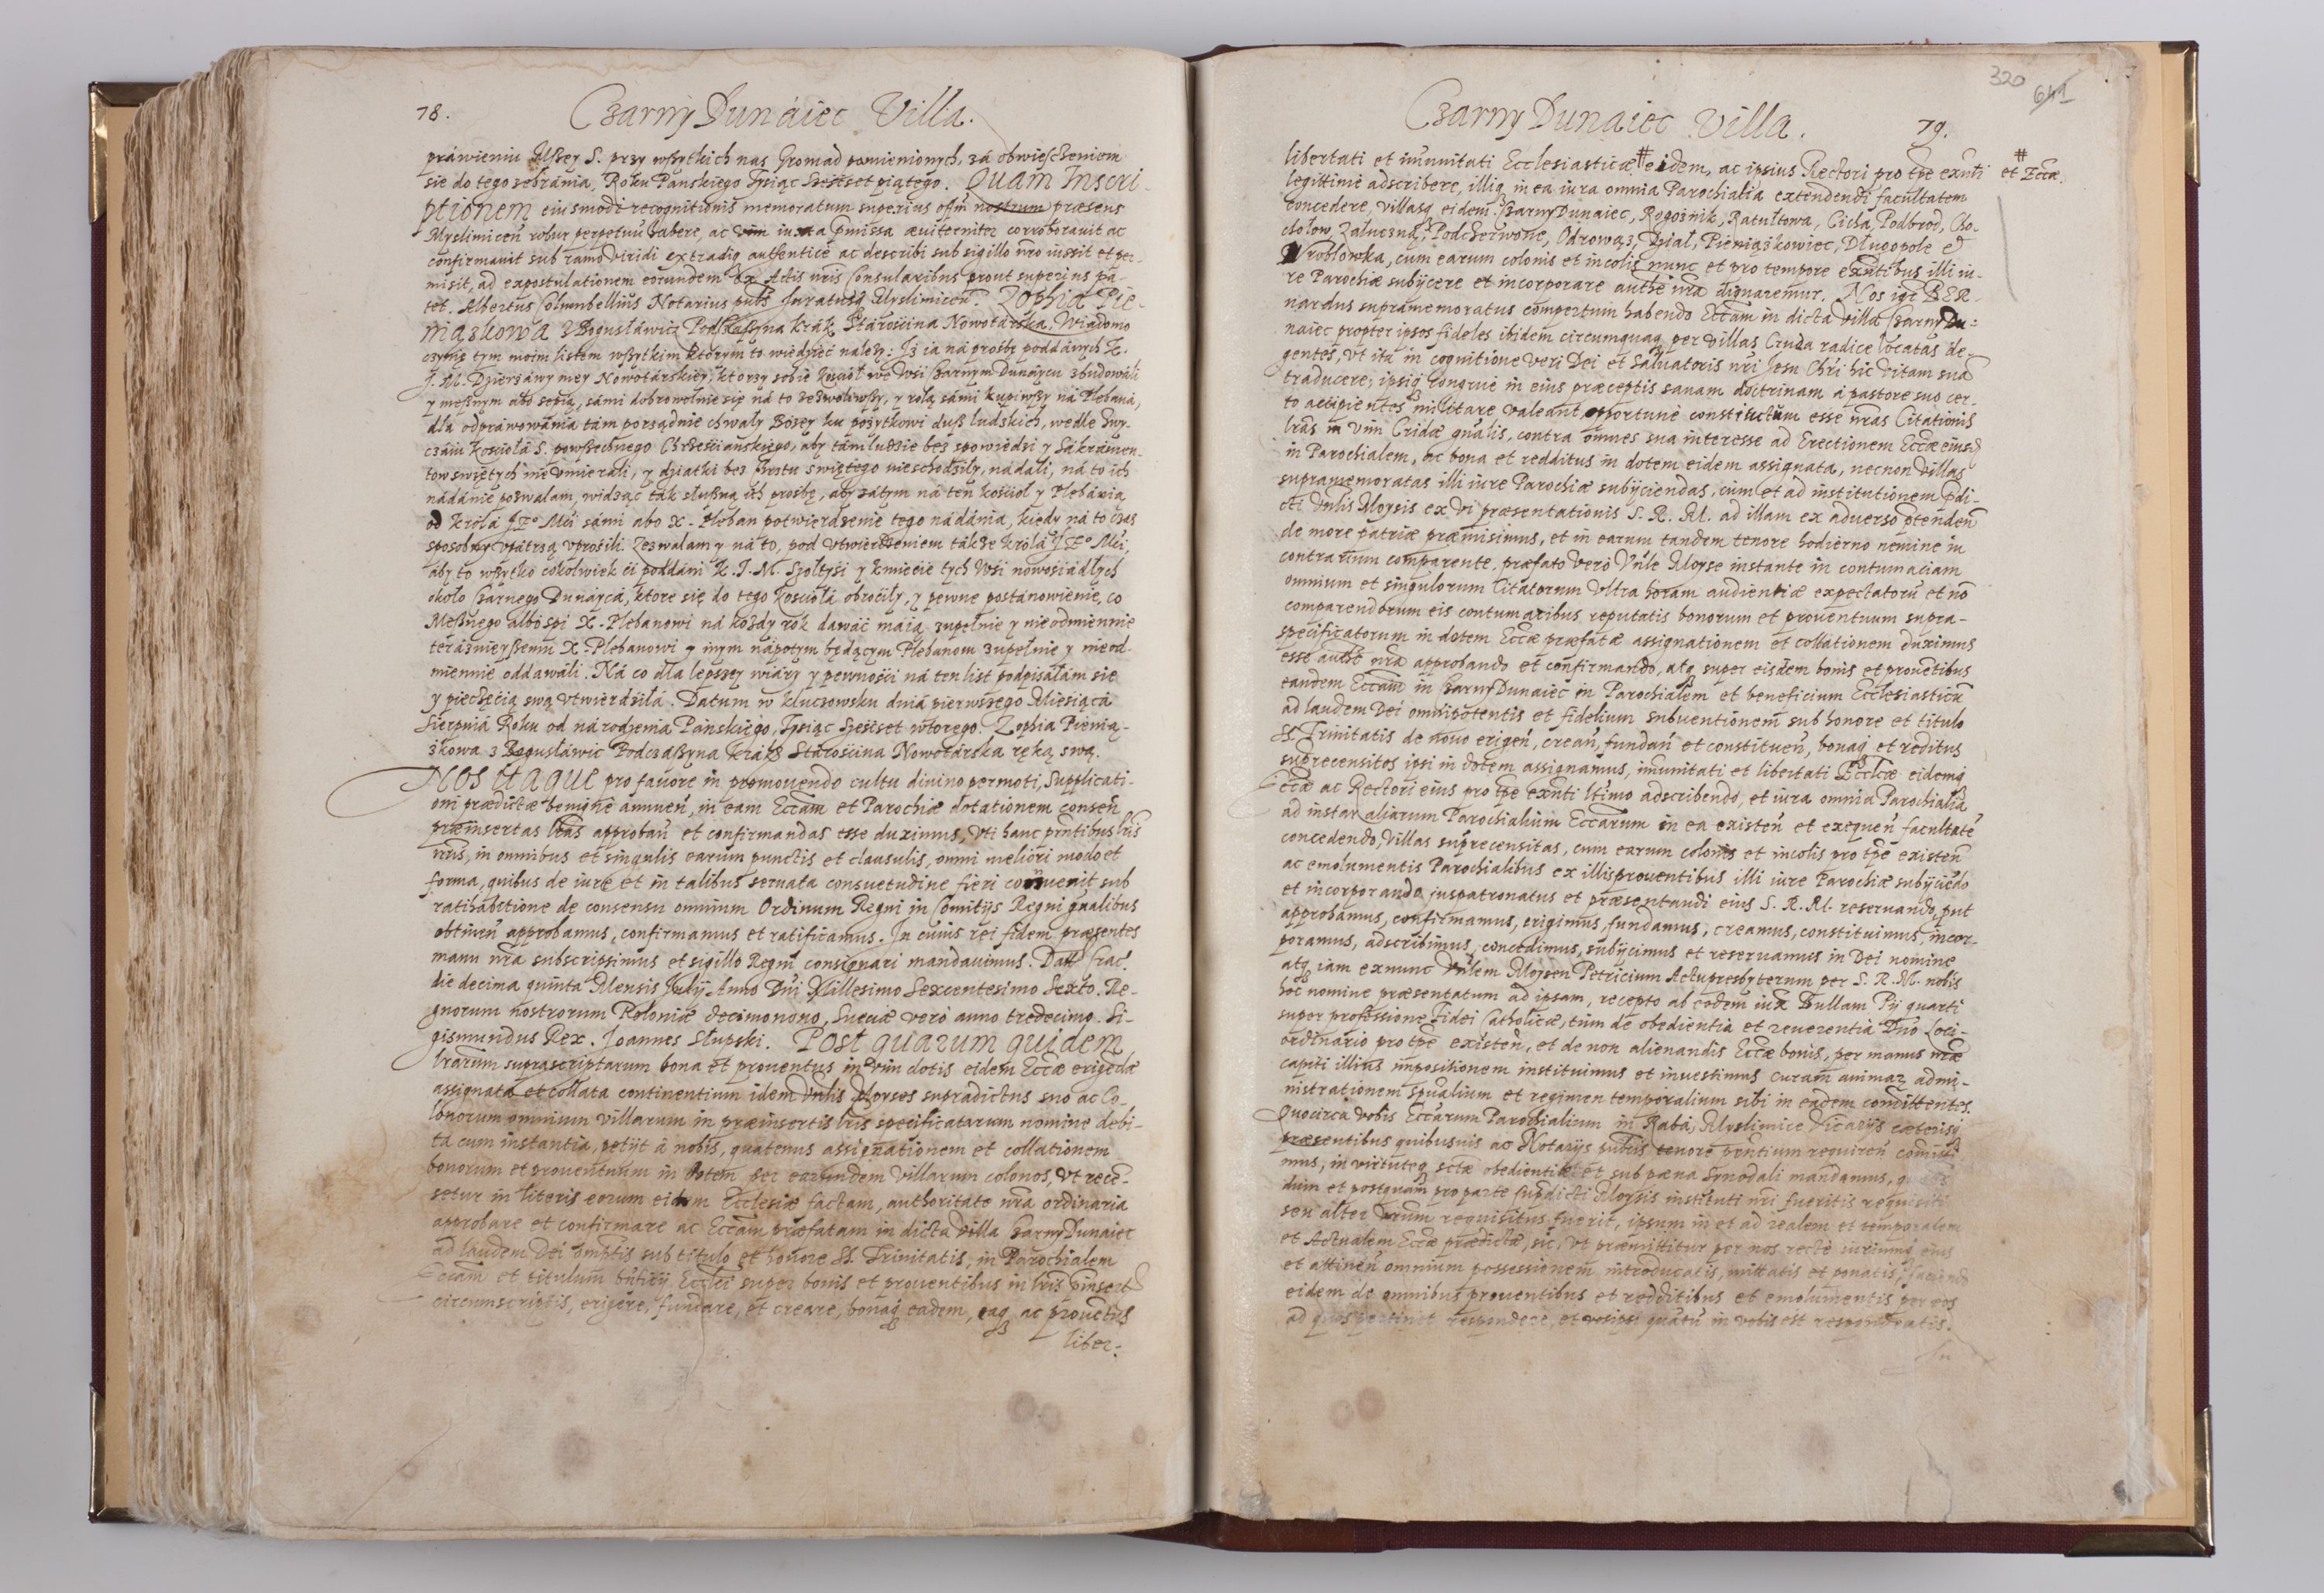 78.
Czarny Dunáiec Villa.
práwieniu Mszey S. przy wszytkich nas Gromad pomienionych, zá obwieszczeniem
sie do tego zebránia, Roku Pánskiego Tysiąc Szescset piątego. Quam Inscri-
ptionem eiusmodi recognitionis memoratum superius offm nostrum præsens
Myslimiceñ robur perpetuũ habere, ac vim iuxta pmissa æuiternitor corroborauit ac
confirmauit sub ramo viridi extradiq authentice ac describi sub sigillo nro iussit et per-
misit, ad expostulationem eorundem Ex Actis nris Consularibus prout superius pa-
tet. Albertus Columbellius Notarius publ Juratusq Myslimiceñ. Zophia Pie-
niązkowa z Bogusłáwicz Podczászyna krák Stárosćina Nowotárska, Wiadomo
czynię tym moim listem wszytkim ktorym to wiedzieć należy: Iż ia ná prosbę poddánych K.
J. M. Dzierżáwy mey Nowotárskiey, ktorzy sobie kośćioł we Wsi Czarnym Dunáycu zbudowáli
y mesznym ábo sepią, sámi dobrowolnie się ná to zezwoliwszy, y rolą sámi kupiwszy ná Plebaná,
dla odpráwowánia tám porządnie chwały Bożey ku pożytkowi dusz ludskich, wedle zwy-
czáiu kościołá S. powszechnego Chrześćiánskiego, áby tám ludzie bez spowiedzi y Sákrámen-
tow swiętych nie vmieráli, y dziatki bez krztu swiętego nieschodziły, nádáli, ná to ich
nádánie pozwalam, widząc ták słuszną ich prosbę, áby zátym ná ten kościoł y Plebánią
od krolá Jgo Mći sámi ábo X. Pleban potwierdzenie tego nádánia, kiedy ná to czas
sposobny vpátrzą vprosili. Zezwalam y ná to, pod vtwierdzeniem tákże krolá Jgo Mći,
áby to wszytko cokolwiek ći poddáni K. J. M. Szołtysi y kmiećie tych Wsi nowosiádłych
około Czárnego Dunáycá, ktore się do tego kośćiołá obroćiły, y pewne postánowienie, co
Mesznego álbo spi X. Plebanowi ná każdy rok dáwáć máią zupełnie y nieodmiennie
teráznieyszemu X. Plebanowi y inym nápotym będącym Plebanom zupełnie y nieod-
miennie oddawáli. Ná co dla lepszey wiáry y pewnośći ná ten list podpisáłám sie
y pieczęcią swą vtwierdziłá. Datum w kluczowsku dniá pierwszego Miesiącá
Sierpniá Roku od národzenia Pánskiego, Tysiąc Szesćset wtorego. Zophia Pienią-
zkowa z Bogusłáwic Podczászyna krák Stárosćina Nowotárska ręką swą.
Nos itaque pro fauore in promouendo cultu diuino permoti, Supplicati-
oni prædictæ benigne annueñ, in eam Eccam et Parochiæ dotationem conseñ
præinsertas lras approbañ et confirmandas esse duximus, vti hanc pntibus lris
nris, in omnibus et singulis earum punctis et clausulis, omni meliori modo et
forma, quibus de iure et in talibus seruata consuetudine fieri conuenit sub
ratihabitione de consensu omnium Ordinum Regni in Comitijs Regni gnalibus
obtineñ approbamus, confirmamus et ratificamus. In cuius rei fidem præsentes
manu nra subscripsimus et sigillo Regni consignari mandauimus. Datt Crac.
die decima quinta Mensis Julij Anno Dni Millesimo Sexcentesimo Sexto. Re-
gnorum nostrorum Poloniæ decimonono, Sueuæ vero anno tredecimo. Si-
gismundus Rex. Joannes Słupski. Post quarum quidem
lrarum suprascriptarum bona et prouentus in vim dotis eidem Eccæ erigedæ
assignata et collata continentium idem Vnlis Moyses supradictus suo ac Co-
lonorum omnium villarum in præinsertis lris specificatarum nomine debi-
ta cum instantia, petijt á nobis, quatenus assignationem et collationem
bonorum et prouentuum in dotem per earundem Villarum colonos, vt recẽ-
setur in literis eorum eidem Ecclesiæ factam, authoritate nra ordinaria
approbare et confirmare ac Eccam præfatam in dicta Villa Czarny Dunaiec
ad laudem Dei omptis sub titulo et honore SS. Trinitatis, in Parochialem
Eccam et titulum bnficij Ecclici super bonis et prouentibus in lris pinsert
circumscriptis, erigere, fundare, et creare, bonaq eadem, eaq ac prouetus
liber-
320
641
Czarny Dunaiec Villa.
79.
libertati et imunitati Ecclesiasticæ # eidem, ac ipsius Rectori pro tpe exnti
# et Eccæ.
legittimè adscribere, illiq in ea iura omnia Parochialia extendendi facultatem
concedere, villasq eidem Czarny Dunaiec, Rogoźnik, Ratułtowa, Cicha, Podbrod, Cho-
chołow, Załuczną, Podcherwone, Odrowąz, Dział, Pieniązkowiec, Długopole et
Wroblowka, cum earum colonis et incolis nunc et pro tempore exntibus illi iu-
re Parochiæ subijcere et incorporare authe nra dignaremur. Nos igr BER-
nardus supramemoratus compertum habendo Eccam in dicta villa Czarny Du-
naiec propter ipsos fideles ibidem circumquaq per villas Cruda radice locatas de-
gentes, vt ita in cognitione veri Dei et Saluatoris nri Jesu Chri hic vitam suã
traducere, ipsiq congruè in eius præceptis sanam doctrinam á pastore suo cer-
to accipientes militare valeant, opportunè constructam esse nras Citationis
lras in vim Cridæ gnalis, contra omnes sua interesse ad Erectionem Eccæ eiusd
in Parochialem, ac bona et redditus in dotem eidem assignata, necnon villas
supramemoratas illi iure Parochiæ subijciendas, cùm et ad institutionem pdi-
cti Vnlis Moysis ex vi præsentationis S. R. M. ad illam ex aduerso ptendeñ
de more patriæ præmisimus, et in earum tandem tenore hodierno nemine in
contrarium comparente, præfato verò Vnle Moyse instante in contumaciam
omnium et singulorum Citatorum vltra horam audientiæ expectatorũ et nõ
comparendorum eis contumacibus reputatis bonorum et prouentuum supra-
specificatorum in dotem Eccæ præfatæ assignationem et collationem duximus
esse authe nra approbando et confirmando, atq super eisdem bonis et prouẽtibus
eandem Eccam in Czarny Dunaiec in Parochialem et beneficium Ecclesiasticũ
ad laudem Dei omnipotentis et fidelium subuentionem sub honore et titulo
SS. Trinitatis de nouo erigeñ, creañ, fundañ et constitueñ, bonaq et reditus
suprecensitos ipsi in dotem assignamus, imunitati et libertati Ecclicæ eidemq
Eccæ ac Rectori eius pro tpe exnti ltimo adscribendo, et iura omnia Parochialia
ad instar aliarum Parochialium Eccarum in ea existeñ et exequeñ facultatẽ
concedendo, Villas suprecensitas, cum earum colonis et incolis pro tpe existeñ
ac emolumentis Parochialibus ex illis prouentibus illi iure Parochiæ subijciẽdo
et incorporando, iuspatronatus et præsentandi eius S. R. M. reseruando, put
approbamus, confirmamus, erigimus, fundamus, creamus, constituimus, incor-
poramus, adscribimus, concedimus, subijcimus et reseruamus in Dei nomine
atq iam exnunc Vnlem Moysen Petricium Actupresbyterum per S. R. M. nobis
hoc nomine præsentatum ad ipsam, recepto ab eodem iux Bullam Pij quarti
super professione Fidei Catholicæ, tùm de obedientia et reuerentia Dno Loci-
ordinario pro tpe existeñ, et de non alienandis Eccæ bonis, per manus nræ
capiti illius impositionem instituimus et inuestimus curam animar admi-
nistrationem spũalium et regimen temporalium sibi in eadem comittentes.
Quocirca vobis Eccarum Parochialium in Rabá, Myslimice Vicarijs cæterisq
præsentibus quibusuis ac Notarijs publis tenore pntium requireñ comitti-
mus, in virtuteq sctæ obedientiæ et sub pæna synodali mandamus,
dum et postquam pro parte supdicti Moysis instituti nri fueritis requisiti
seu alter vrum requisitus fuerit, ipsum in et ad realem et temporalem
et Actualem Eccæ prædictæ, sic, vt præmittitur per nos rectè iuriumq eius
et attineñ omnium possessionem introducatis, mittatis et ponatis, faciendo
eidem de omnibus prouentibus et redditibus et emolumentis per eos
ad quos pertinet respondere, et vosipsi quãtũ in vobis est respondeatis.
In